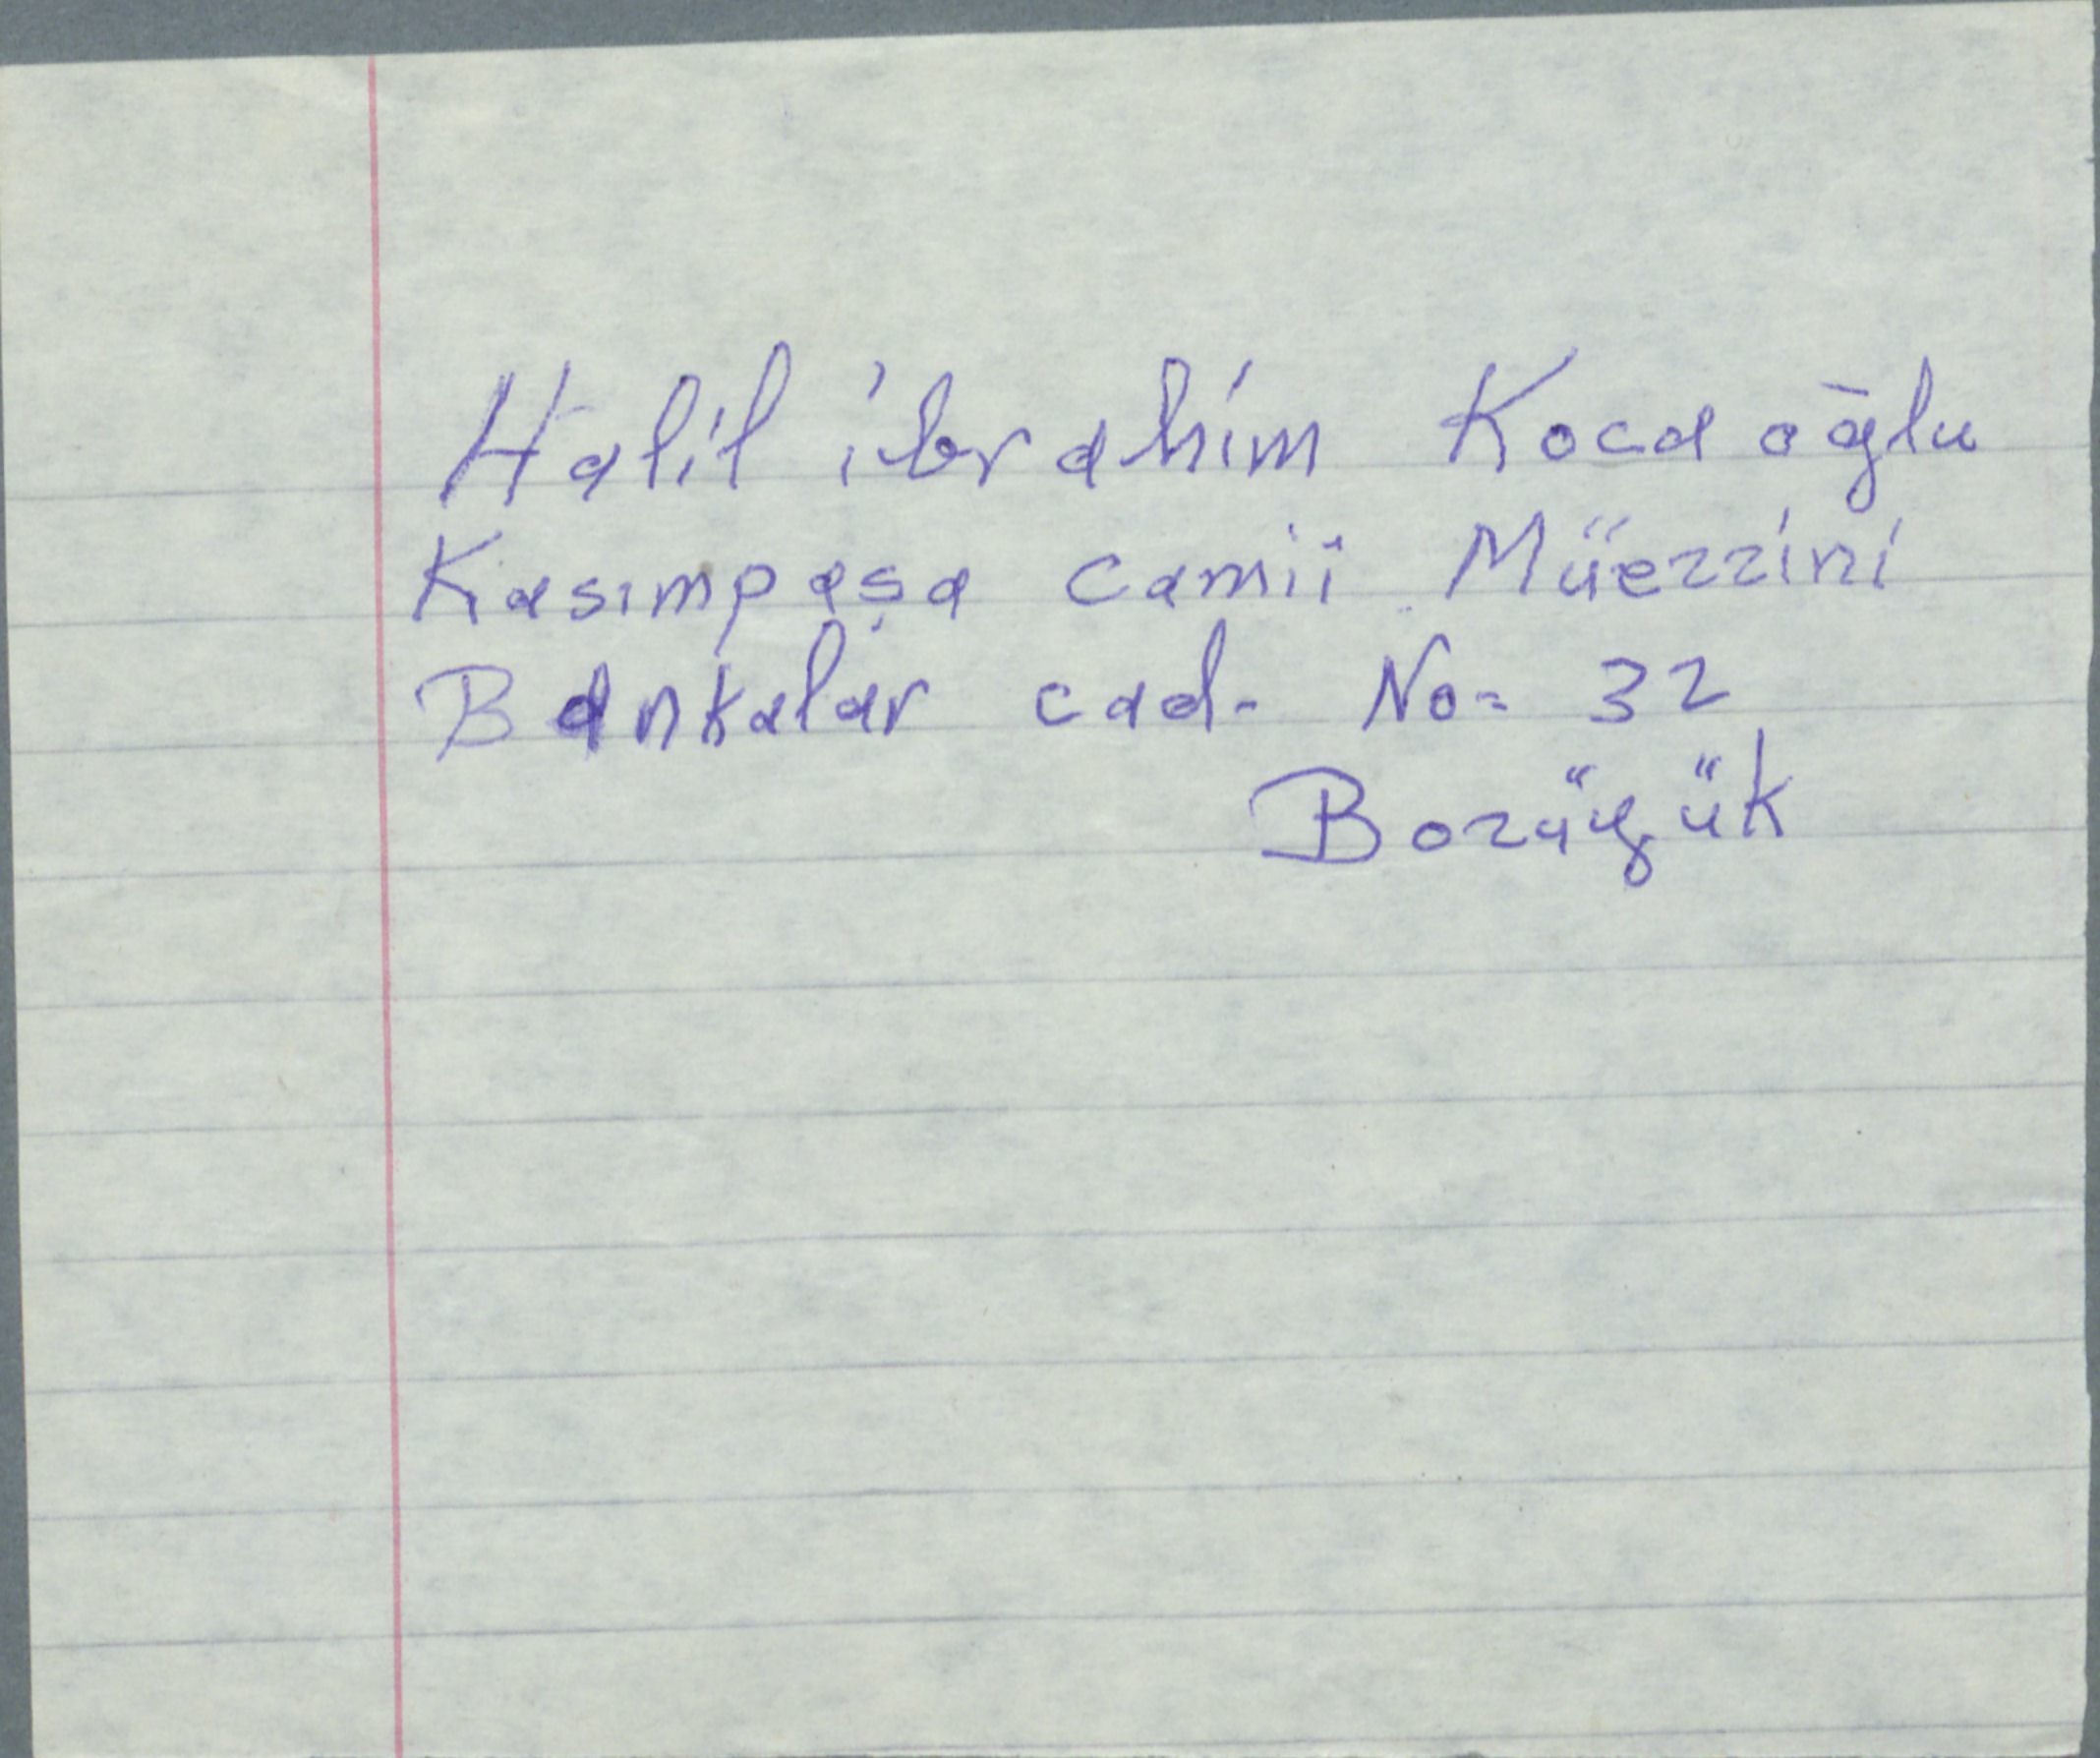 Halil ibrahim Kocaoğlu
Kasımpaşa camii Müezzini
Bankalar cad. No= 32
Bozüyük